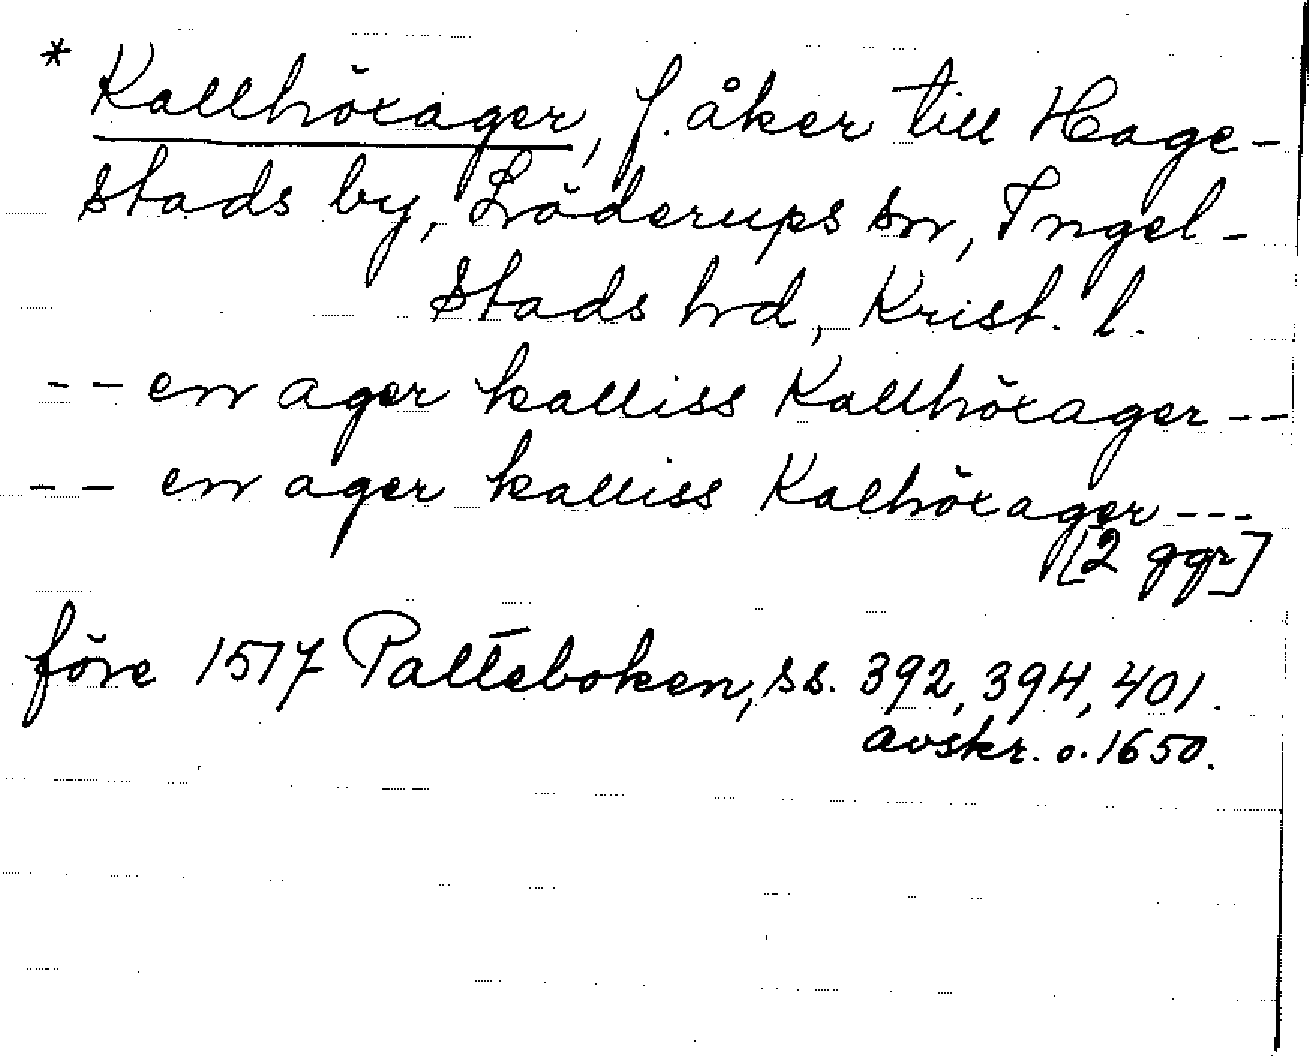 * Kallhöxager, f. åker till Hage-
stads by, Löderups sn, Ingel-
stads hd, Krist. l.
-- en ager kalliss Kallhöxager --
-- en ager kalliss Kalhöxager ---
[2 ggr]
före 1517 Palteboken, ss. 392, 394, 401.
avskr. o. 1650.